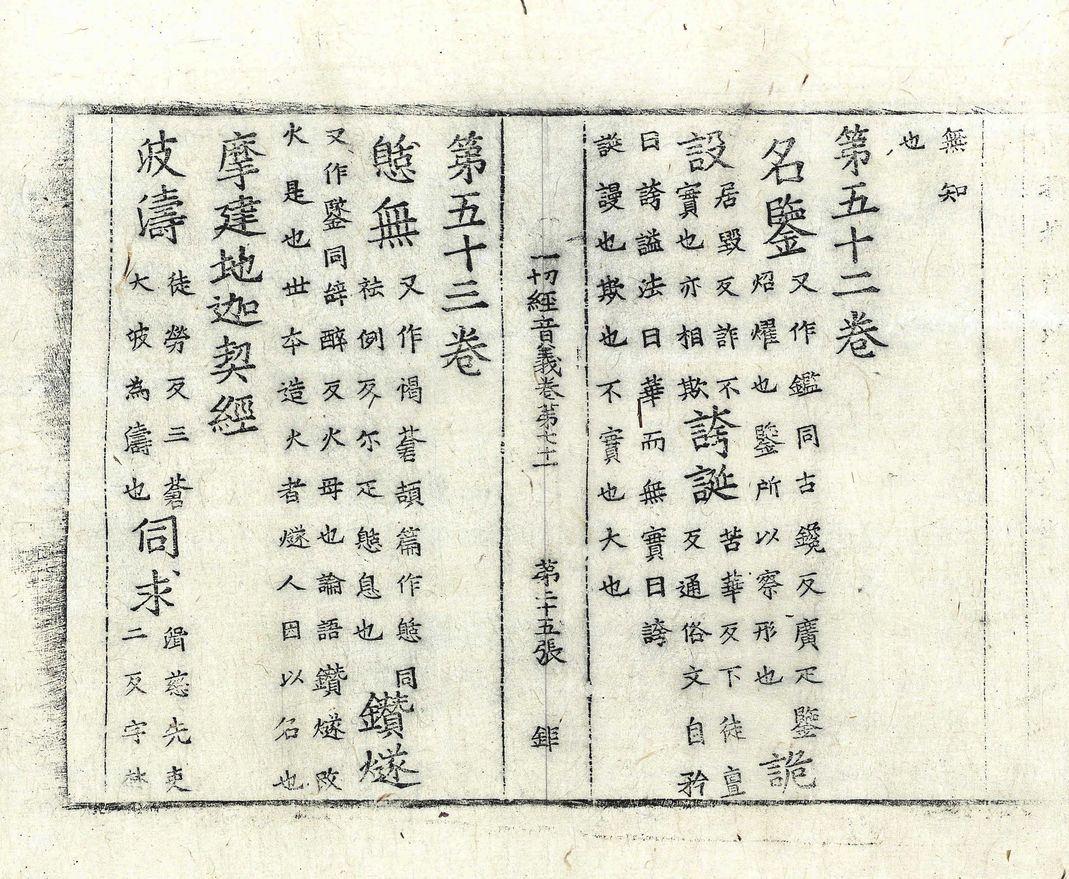 無知
也
第五十二卷
名鑒 又作鑑同古鑱反廣疋鑒
炤燿也鑒所以察形也 詭
設 居毀反詐不
實也亦相欺 誇誕 苦華反下徒亶
反通俗文自矜
曰誇謚法曰華而無實曰誇
誕謾也欺也不實也大也
一切經音義卷第七十一 第二十五張 鉅
第五十三卷
憩無 又作愒蒼頡篇作憩同
祛例反尒疋憩息也 鑽燧
又作鐆同辝醉反火母也論語鑽燧改
火是也世本造火者燧人因以名也
摩建地迦契經
波濤 徒勞反三蒼
大波為濤也 伺求 胥慈先吏
二反字林